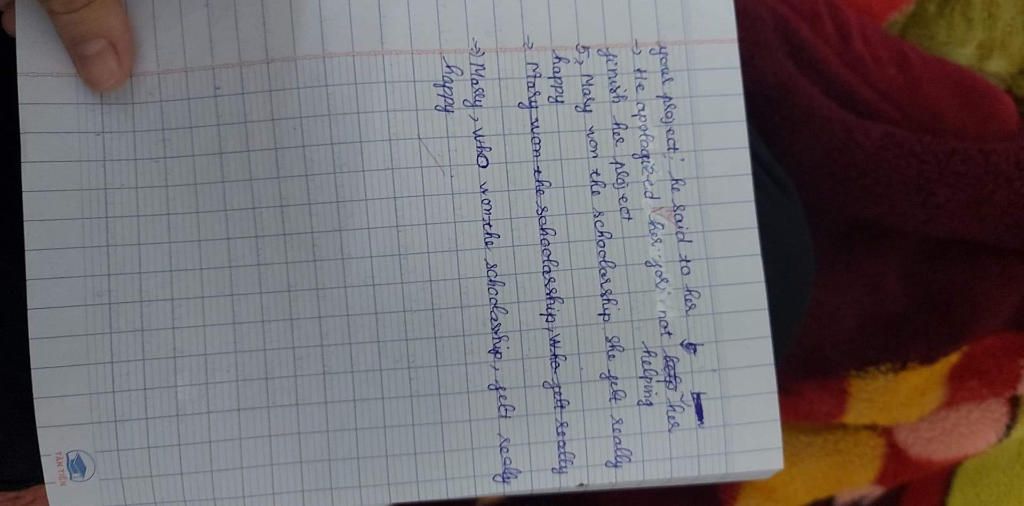 your project", he said to her
→ He apologized her for not her
helping
finish her project
5, Mary won the schoolarship. She felt really
happy
→ Mary won the schoolarship, who felt really
→ Mary, who won the schoolarship, felt really
happy
TÂN TIẾN